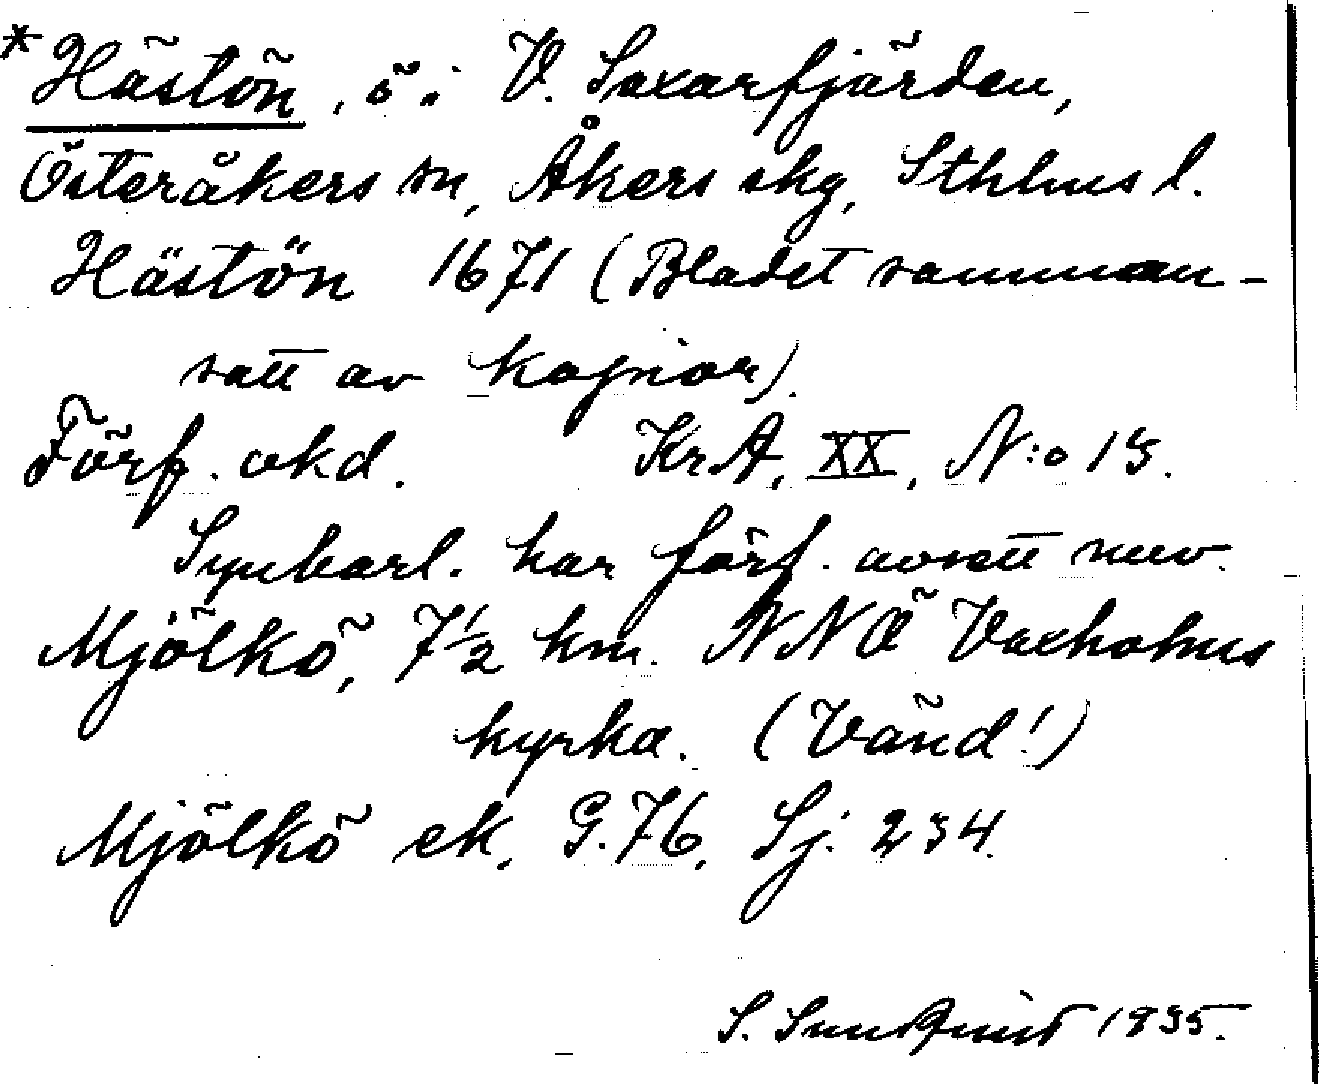 *Hästön, ö i V. Saxarfjärden,
Österåkers sn, Åkers skg, Sthlms l.
Hästön 1671 (Bladet samman-
satt av kopior).
Förf. okd. KrA, XX, N:o 15.
Synbarl. har förf. avsett nuv.
Mjölkö, 7½ km. NNÖ Vaxholms
kyrka. (Vänd!)
Mjölkö ek. G.76, Sj. 234.
S. Sundquist 1935.